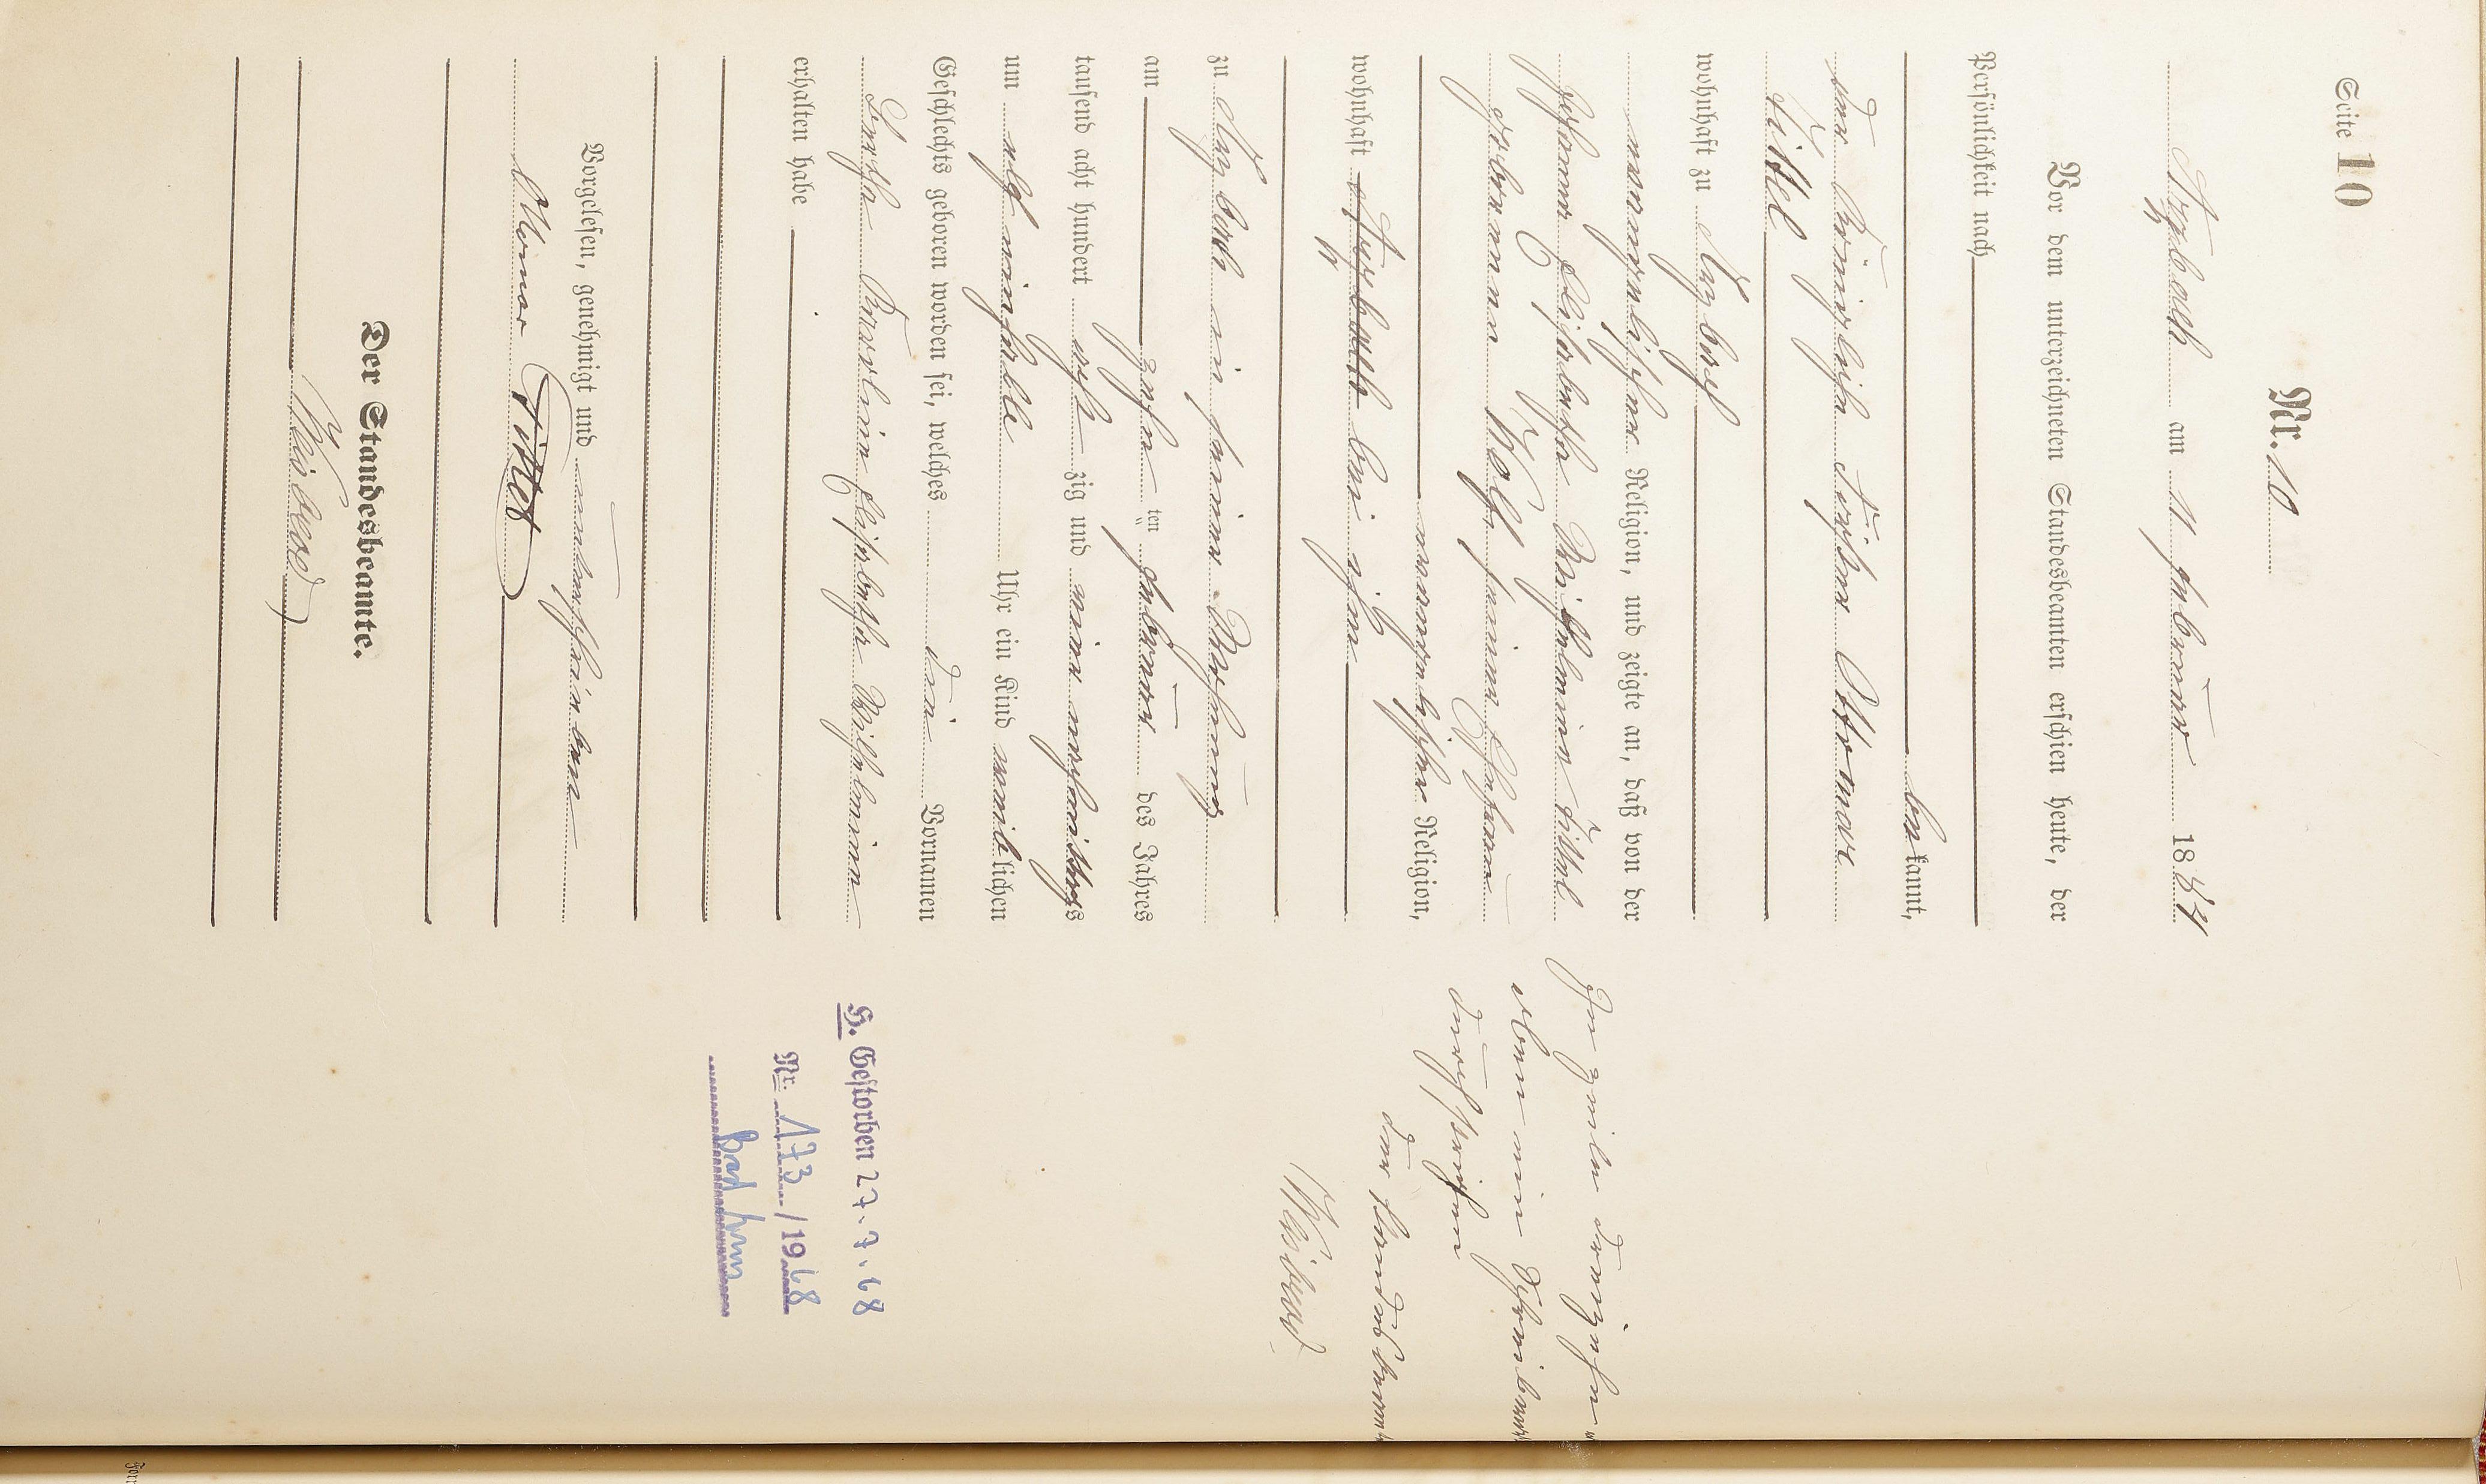 Seite 10
Nr. 10
Atzbach am 11 Februar 1884
Vor dem unterzeichneten Standesbeamten erschien heute, der
Persönlichkeit nach
bekannt,
der Königliche Förster Ottomar
Tittel
wohnhaft zu Atzbach
evangelischer Religion, und zeigte an, daß von der
Elisabetha Wilhelmine Tittel
geborenen Wolf, seiner Ehefrau
evangelischer Religion,
wohnhaft Atzbach bei ihm
zu Atzbach in seiner Wohnung
am zehn ten Februar des Jahres
tausend acht hundert acht zig und vier nachmittags
um elf einhalb Uhr ein Kind weiblichen
Geschlechts geboren worden sei, welches die Vornamen
Karoline Elisabetha Wilhelmine
erhalten habe
Vorgelesen, genehmigt und unterschrieben
Ottomar Tittel
Der Standesbeamte.
In Zeile dreizehn
oben ein
durchstrichen
der Standesbeamte
H. Gestorben 27.7.68
Nr. 173 / 1968